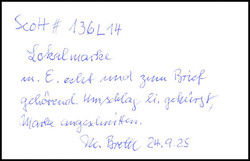 Scott # 136L14
Lokalmarke
m. E. echt und zum Brief
gehörend. Umschlag li. gekürzt,
Marke angeschnitten.
24.9.25